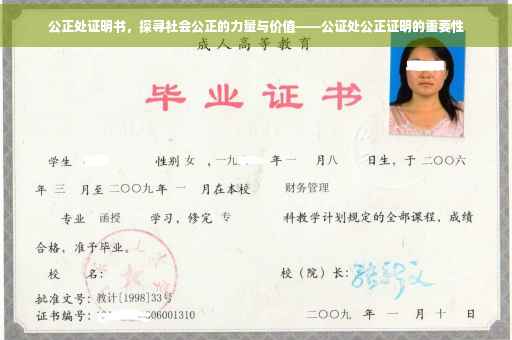 公正处证明书，探寻社会公正的力量与价值——公证处公正证明的重要性
成人高等教育
毕业证书
学生 性别 女 ，一九 年 一 月八 日生，于 二〇〇六
年 三 月至 二〇〇九 年 一 月在本校 财务管理
专业 函授 学习，修完 专 科教学计划规定的全部课程，成绩
合格，准予毕业。
校 名： 校（院）长：
批准文号：教计[1998]33号
证书编号： 06001310 二〇〇九 年 一 月 十 日